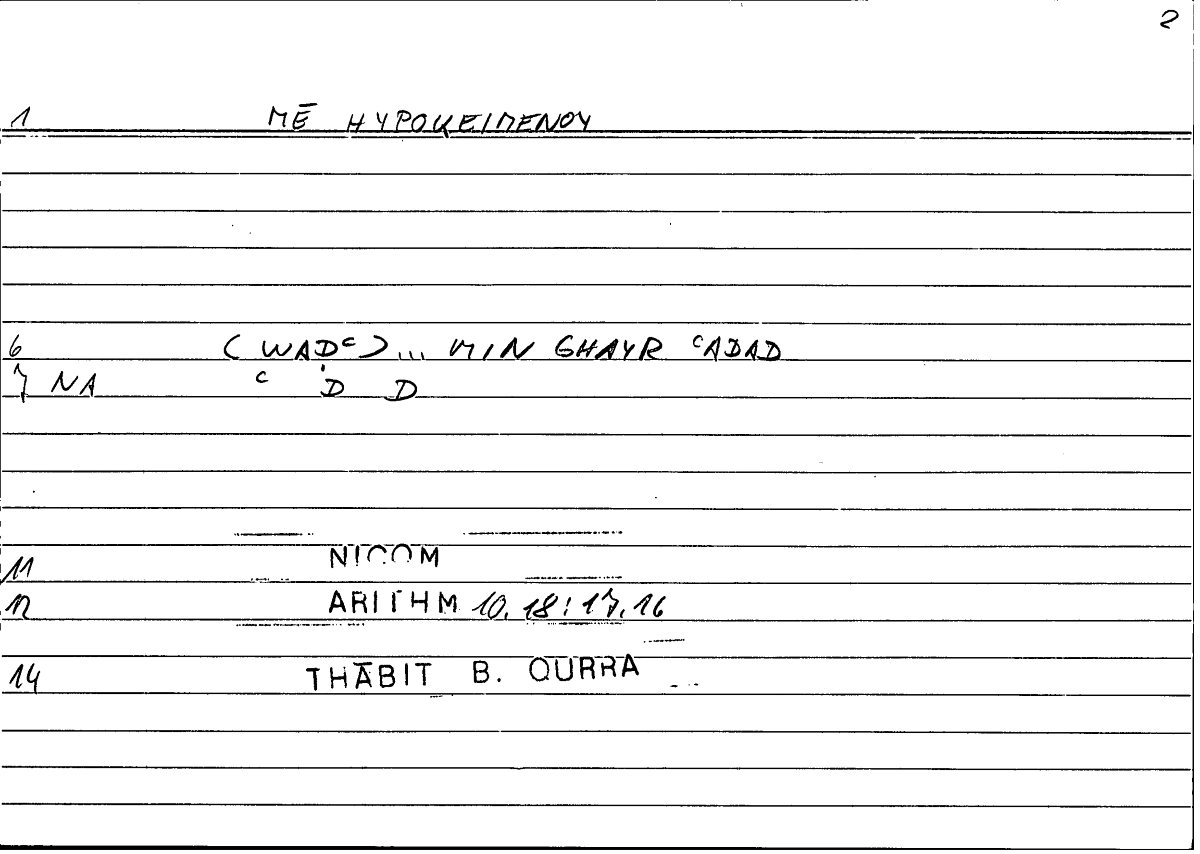 2
1 MĒ HYPOKEIMENOY
6 (WAḌᶜ)... MIN GHAYR ᶜADAD
7 NA ᶜ Ḍ D
11 NICOM
12 ARITHM 10. 18:17.16
14 THĀBIT B. QURRA